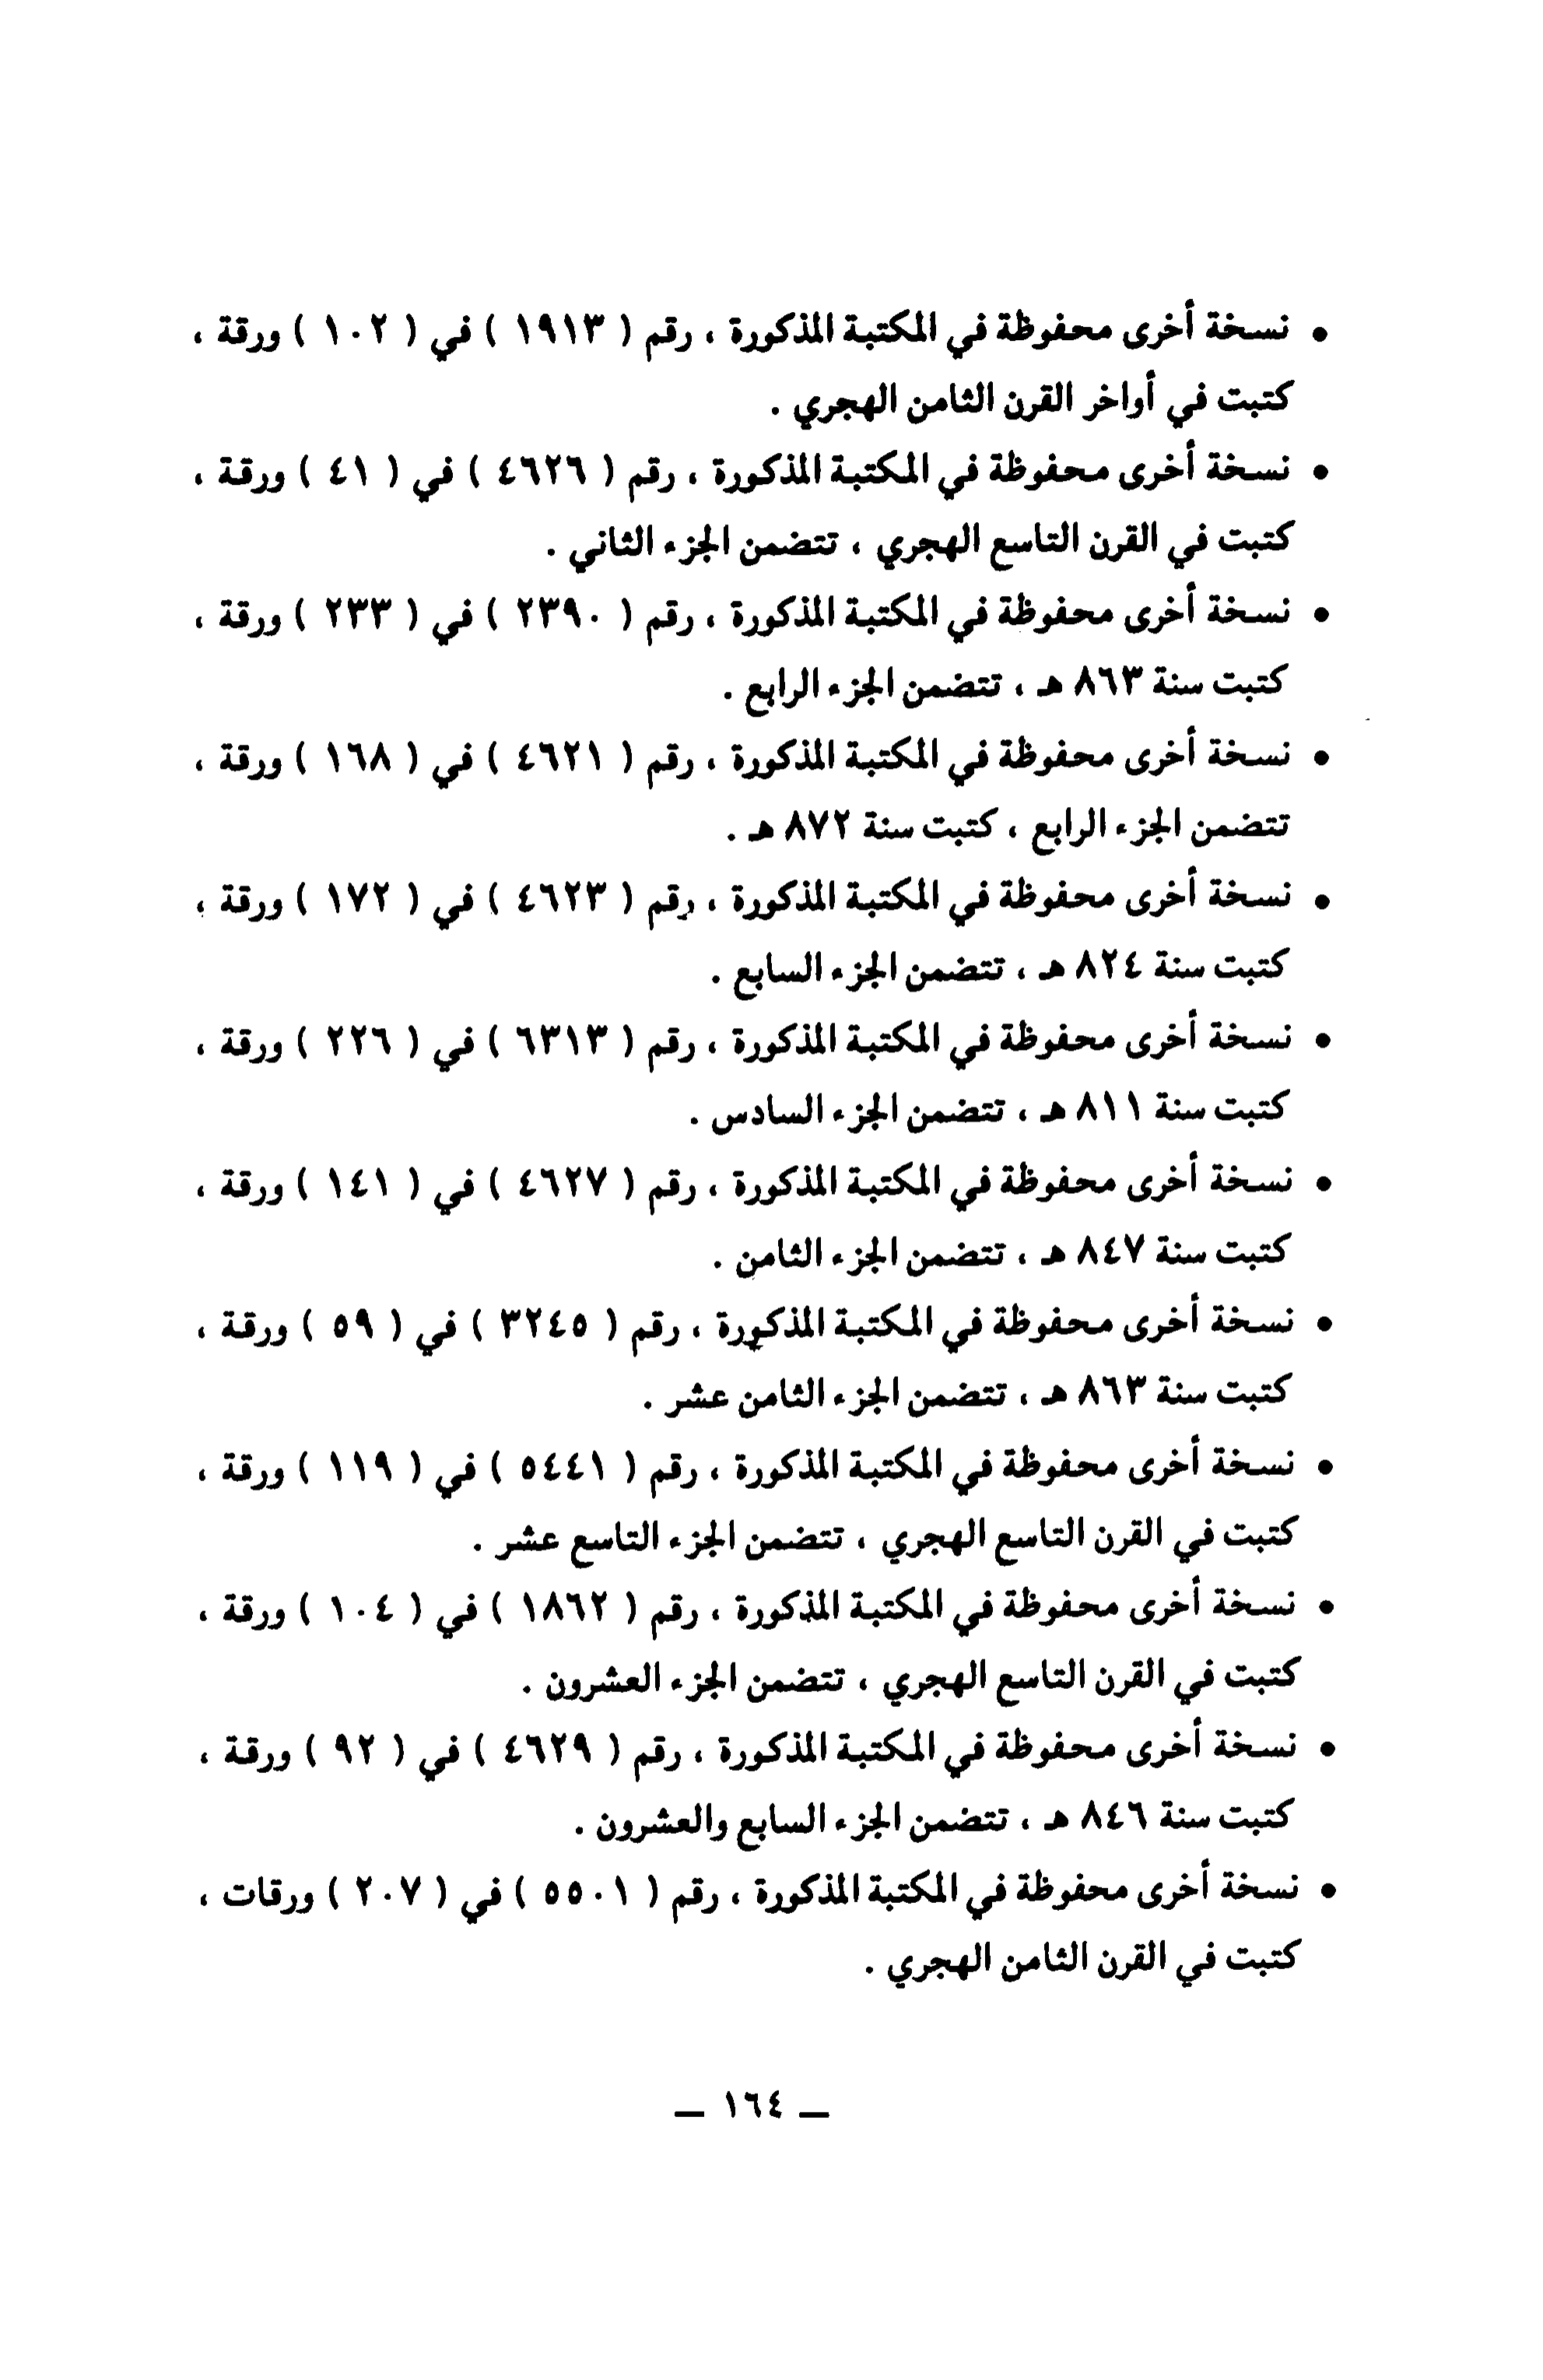 • نسخة أخرى محفوظة في المكتبة المذكورة ، رقم ( ١٩١٣ ) في ( ١٠٢ ) ورقة ،
كتبت في أواخر القرن الثامن الهجري .
• نسخة أخرى محفوظة في المكتبة المذكورة ، رقم ( ٤٦٢٦ ) في ( ٤١ ) ورقة ،
كتبت في القرن التاسع الهجري ، تتضمن الجزء الثاني .
• نسخة أخرى محفوظة في المكتبة المذكورة ، رقم ( ٢٣٩٠ ) في ( ٢٣٣ ) ورقة ،
كتبت سنة ٨٦٣ هـ ، تتضمن الجزء الرابع .
• نسخة أخرى محفوظة في المكتبة المذكورة ، رقم ( ٤٦٢١ ) في ( ١٦٨ ) ورقة ،
تتضمن الجزء الرابع ، كتبت سنة ٨٧٢ هـ .
• نسخة أخرى محفوظة في المكتبة المذكورة ، رقم ( ٤٦٢٣ ) في ( ١٧٢ ) ورقة ،
كتبت سنة ٨٢٤ هـ ، تتضمن الجزء السابع .
• نسخة أخرى محفوظة في المكتبة المذكورة ، رقم ( ٦٣١٣ ) في ( ٢٢٦ ) ورقة ،
كتبت سنة ٨١١ هـ ، تتضمن الجزء السادس .
• نسخة أخرى محفوظة في المكتبة المذكورة ، رقم ( ٤٦٢٧ ) في ( ١٤١ ) ورقة ،
كتبت سنة ٨٤٧ هـ ، تتضمن الجزء الثامن .
• نسخة أخرى محفوظة في المكتبة المذكورة ، رقم ( ٣٢٤٥ ) في ( ٥٩ ) ورقة ،
كتبت سنة ٨٦٣ هـ ، تتضمن الجزء الثامن عشر .
• نسخة أخرى محفوظة في المكتبة المذكورة ، رقم ( ٥٤٤١ ) في ( ١١٩ ) ورقة ،
كتبت في القرن التاسع الهجري ، تتضمن الجزء التاسع عشر .
• نسخة أخرى محفوظة في المكتبة المذكورة ، رقم ( ١٨٦٢ ) في ( ١٠٤ ) ورقة ،
كتبت في القرن التاسع الهجري ، تتضمن الجزء العشرون .
• نسخة أخرى محفوظة في المكتبة المذكورة ، رقم ( ٤٦٢٩ ) في ( ٩٢ ) ورقة ،
كتبت سنة ٨٤٦ هـ ، تتضمن الجزء السابع والعشرون .
• نسخة أخرى محفوظة في المكتبة المذكورة ، رقم ( ٥٥٠١ ) في ( ٢٠٧ ) ورقات ،
كتبت في القرن الثامن الهجري .
— ١٦٤ —